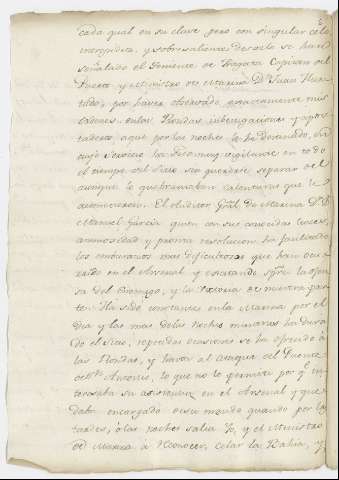 cada qual en su clase pero con singular celo
intrepidez, y sobresaliente deseo la se han
señalado el Teniente de Fragata Capitan del
Puerto y Ministro de Marina Dn Juan
por haver observado exactamente mis
ordenes, en las Rondas,
a que por las noches le he destinado, en
cuyo servicio ha permanecido vigilante en todo
el tiempo del Sitio sin quererse separar de el
aunque le quebrantaban calenturas que le
acometieron. El Auditor Gral de Marina Dn
Manuel Garcia quien con sus conocidas luces,
animosidad y pronta resolucion ha facilitado
los embarazos mas dificultosos que han ocu
rrido en el Arsenal y executando spre la ofen
sa del Enemigo, y la Defensa de nuestra par
te. Ha sido constante en la Marina por el
dia y las mas de las noches mientras ha dura
do el Sitio, repetidas ocasiones se ha ofrecido à
las Rondas, y hasta al ataque del Puente
de Sn Antonio, lo que no le permiti por qe in
teresaba su asistencia en el Arsenal y que
daba encargado de su mando quando por las
tardes, ò las noches salia Yo, y el Ministro
de Marina à reconocer, celar la Bahia, y